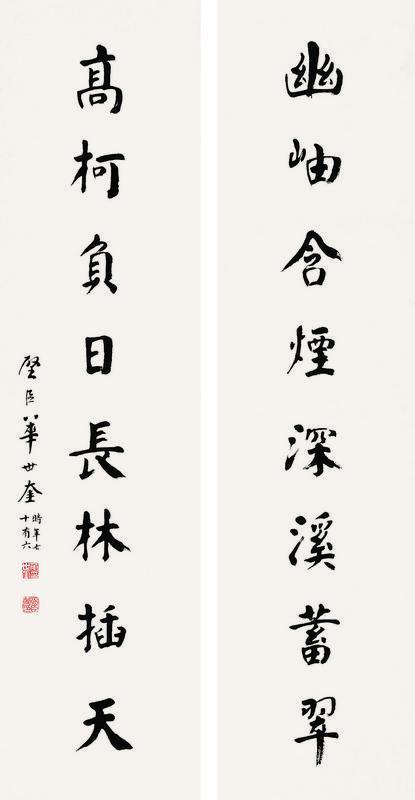 幽岫含煙深溪蓄翠
高柯負日長林插天
璧臣華世奎
時年七
十有六